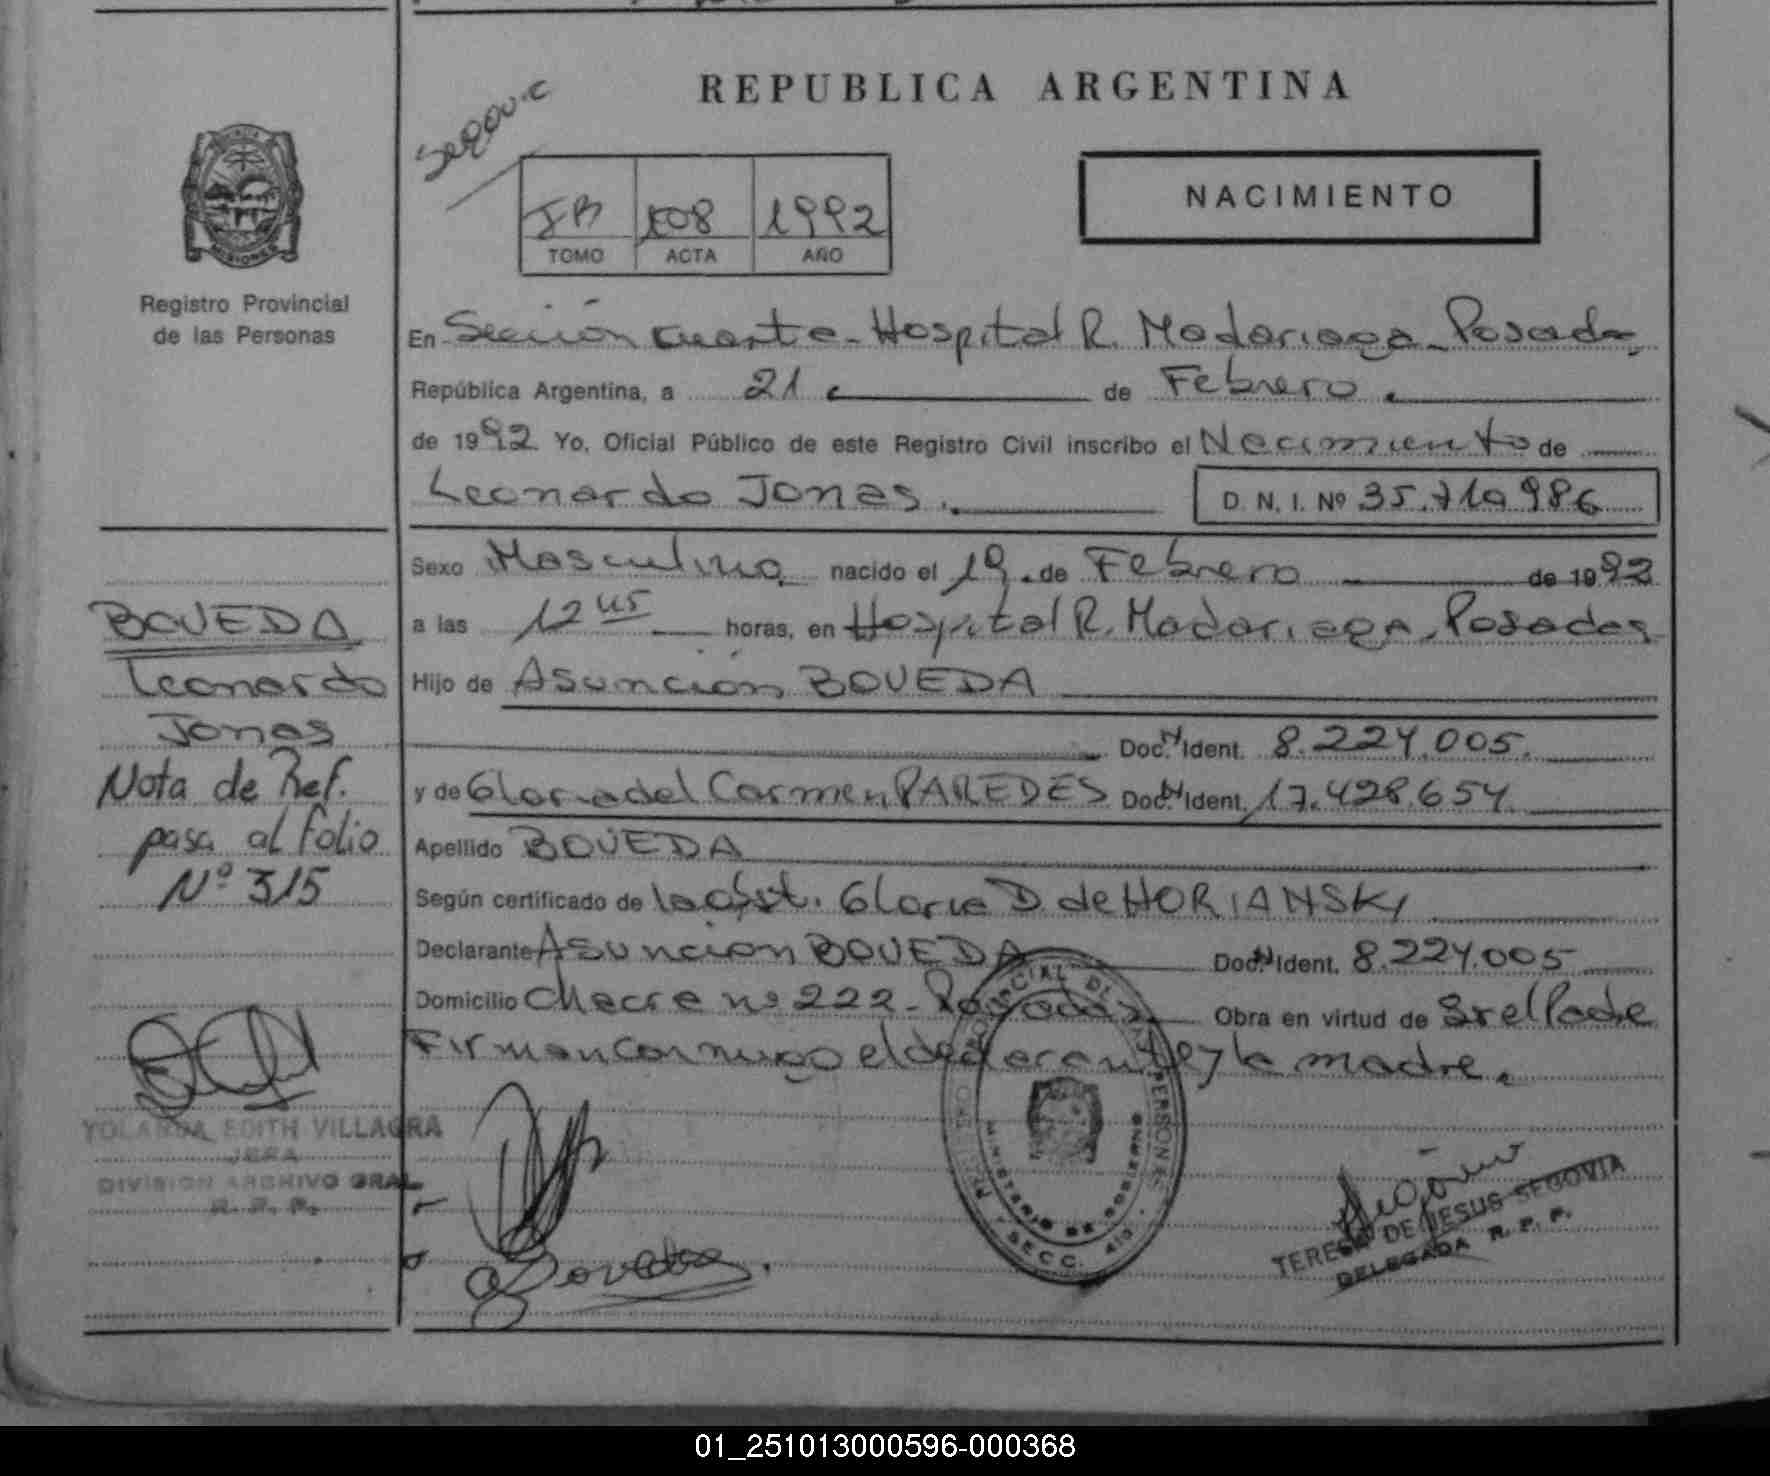 REPUBLICA ARGENTINA
NACIMIENTO
1992
TOMO ACTA AÑO
PROVINCIA MISIONES
Registro Provincial
de las Personas
En Sección Cuarta - Hospital R. Madariaga - Posadas
República Argentina, a 21 de Febrero
de 1992 Yo, Oficial Público de este Registro Civil inscribo el Nacimiento de
Leonardo Jonas.
D. N. I. Nº 35.710.986
Sexo Masculino nacido el 19 de Febrero de 1992
a las 12 45 horas, en Hospital R. Madariaga, Posadas
Hijo de Asunción BOVEDA
Doc. Ident. 8.224.005.
y de Gloria del Carmen PAREDES Doc. Ident. 17.428.654
Apellido BOVEDA
Según certificado de la obst. Gloria D. de HORIANSKI
Declarante Asunción BOVEDA Doc. Ident. 8.224.005
Domicilio Chacra nº 222 - Posadas Obra en virtud de Ser el Padre
Firman conmigo el declarante y la madre.
BOVEDA
Leonardo
Jonas
Nota de Ref.
pasa al folio
Nº 315
YOLANDA EDITH VILLAGRA
JEFA
DIVISION ARCHIVO GRAL
R. P. P.
REGISTRO PROVINCIAL DE LAS PERSONAS
MINISTERIO DE GOBIERNO
SECC. 4ta.
TERESA DE JESUS SEGOVIA
DELEGADA R. P. P.
01_251013000596-000368